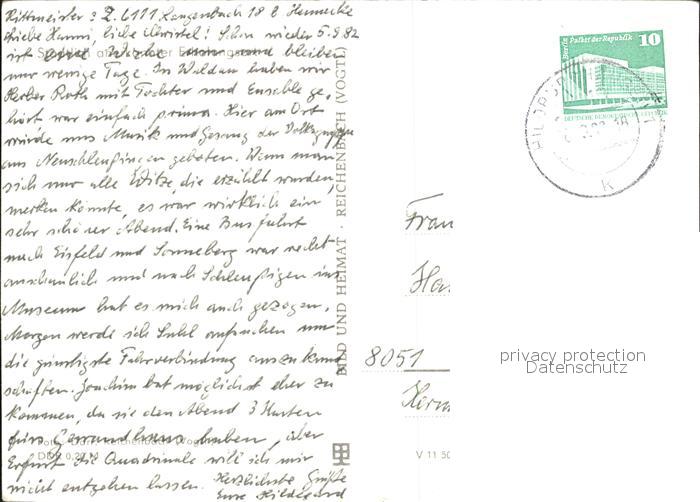 Rittmeister : Z. 6111 Langenbach 18 b Hennecke
Liebe Hanni, liebe Christel! Schon wieder 5.9.82
ist eine Woche um und bleiben
nur wenige Tage. In Waldau haben wir
Herbert Roth mit Tochter und Ensemble ge-
hört war einfach prima. Hier am Ort
wurde uns Musik und Gesang der Volksgruppe
aus geboten. Wenn man
sich nur alle Witze, die erzählt wurden,
merken könnte, es war wirklich ein
sehr schöner Abend. Eine Busfahrt
nach Eisfeld und Sonneberg war recht
anschaulich und nach Schleusingen ins
Museum hat es mich auch gezogen.
Morgen werde ich Suhl aufsuchen um
die günstigste Fahrverbindung auszukund-
schaften. Joachim hat möglichst eher zu
kommen, da sie den Abend 3 Karten
fürs Gewandhaus haben, aber
Erfurt die Quadrinale will ich mir
nicht entgehen lassen. Herzlichste Grüße
Eure Hildegard
BILD UND HEIMAT · REICHENBACH (VOGTL)
V 11 50
Berlin Palast der Republik
10
DEUTSCHE DEMOKRATISCHE REPUBLIK
K
Frau
8051
privacy protection
Datenschutz